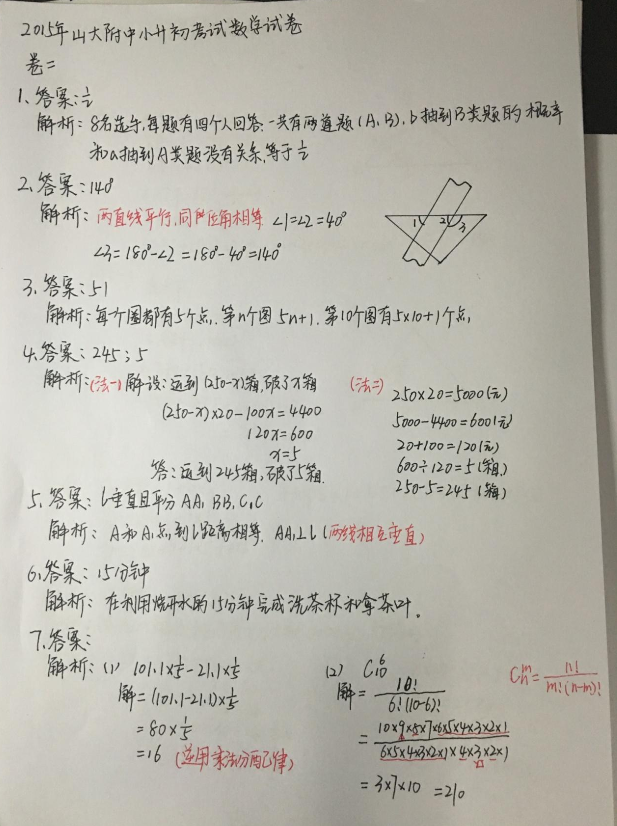 2015年山大附中小升初考试数学试卷
卷二
1、答案:½
解析：8名选手,每题有四个人回答.一共有两道题(A、B),b抽到B类题的概率
和a抽到A类题没有关系,等于½
2、答案:140°
解析：两直线平行,同位角相等. ∠1=∠2=40°
∠3=180°-∠2=180°-40°=140°
1 2 3
3、答案:51
解析:每个图都有5个点,第n个图5n+1.第10个图有5×10+1个点,
4、答案：245；5
解析:(法一)解设:运到(250-x)箱,破了x箱
(250-x)×20-100x=4400
120x=600
x=5
答:运到245箱,破了5箱.
(法二)
250×20=5000(元)
5000-4400=600(元)
20+100=120(元)
600÷120=5(箱)
250-5=245(箱)
5、答案：l垂直且平分AA₁ BB₁ C₁C
解析：A和A₁点到l距离相等. AA₁⊥l(两线相互垂直)
6、答案：15分钟
解析：在利用烧开水的15分钟完成洗茶杯和拿茶叶。
7、答案：
解析：(1) 101.1×⅕-21.1×⅕
解=(101.1-21.1)×⅕
=80×⅕
=16 (逆用乘法分配律)
(2) C₁₀⁶
解= 10!/6!(10-6)!
= 10×9×8×7×6×5×4×3×2×1/6×5×4×3×2×1×4×3×2×1
=3×7×10 =210
Cₙᵐ= n!/m!(n-m)!